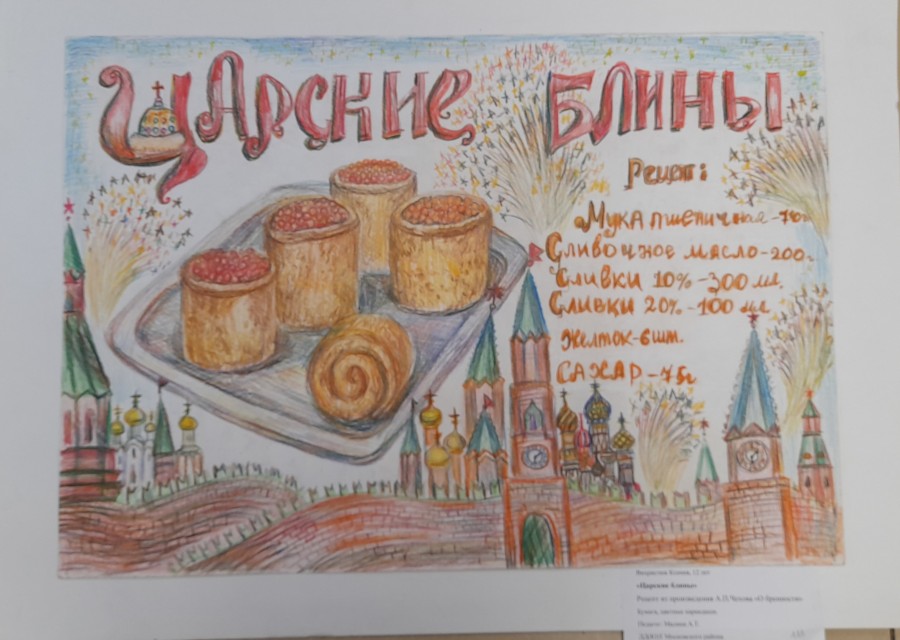 Царские Блины
Рецепт:
Мука пшеничная -
Сливочное масло-200г
Сливки 10%-300 мл.
Сливки 20%-100 мл
Желток-6шт.
Сахар-75г
Ксения, 12 лет
«Царские блины»
Рецепт из произведения А.П.Чехова «О бренности»
Бумага, цветные карандаши
Педагог:
Московского района